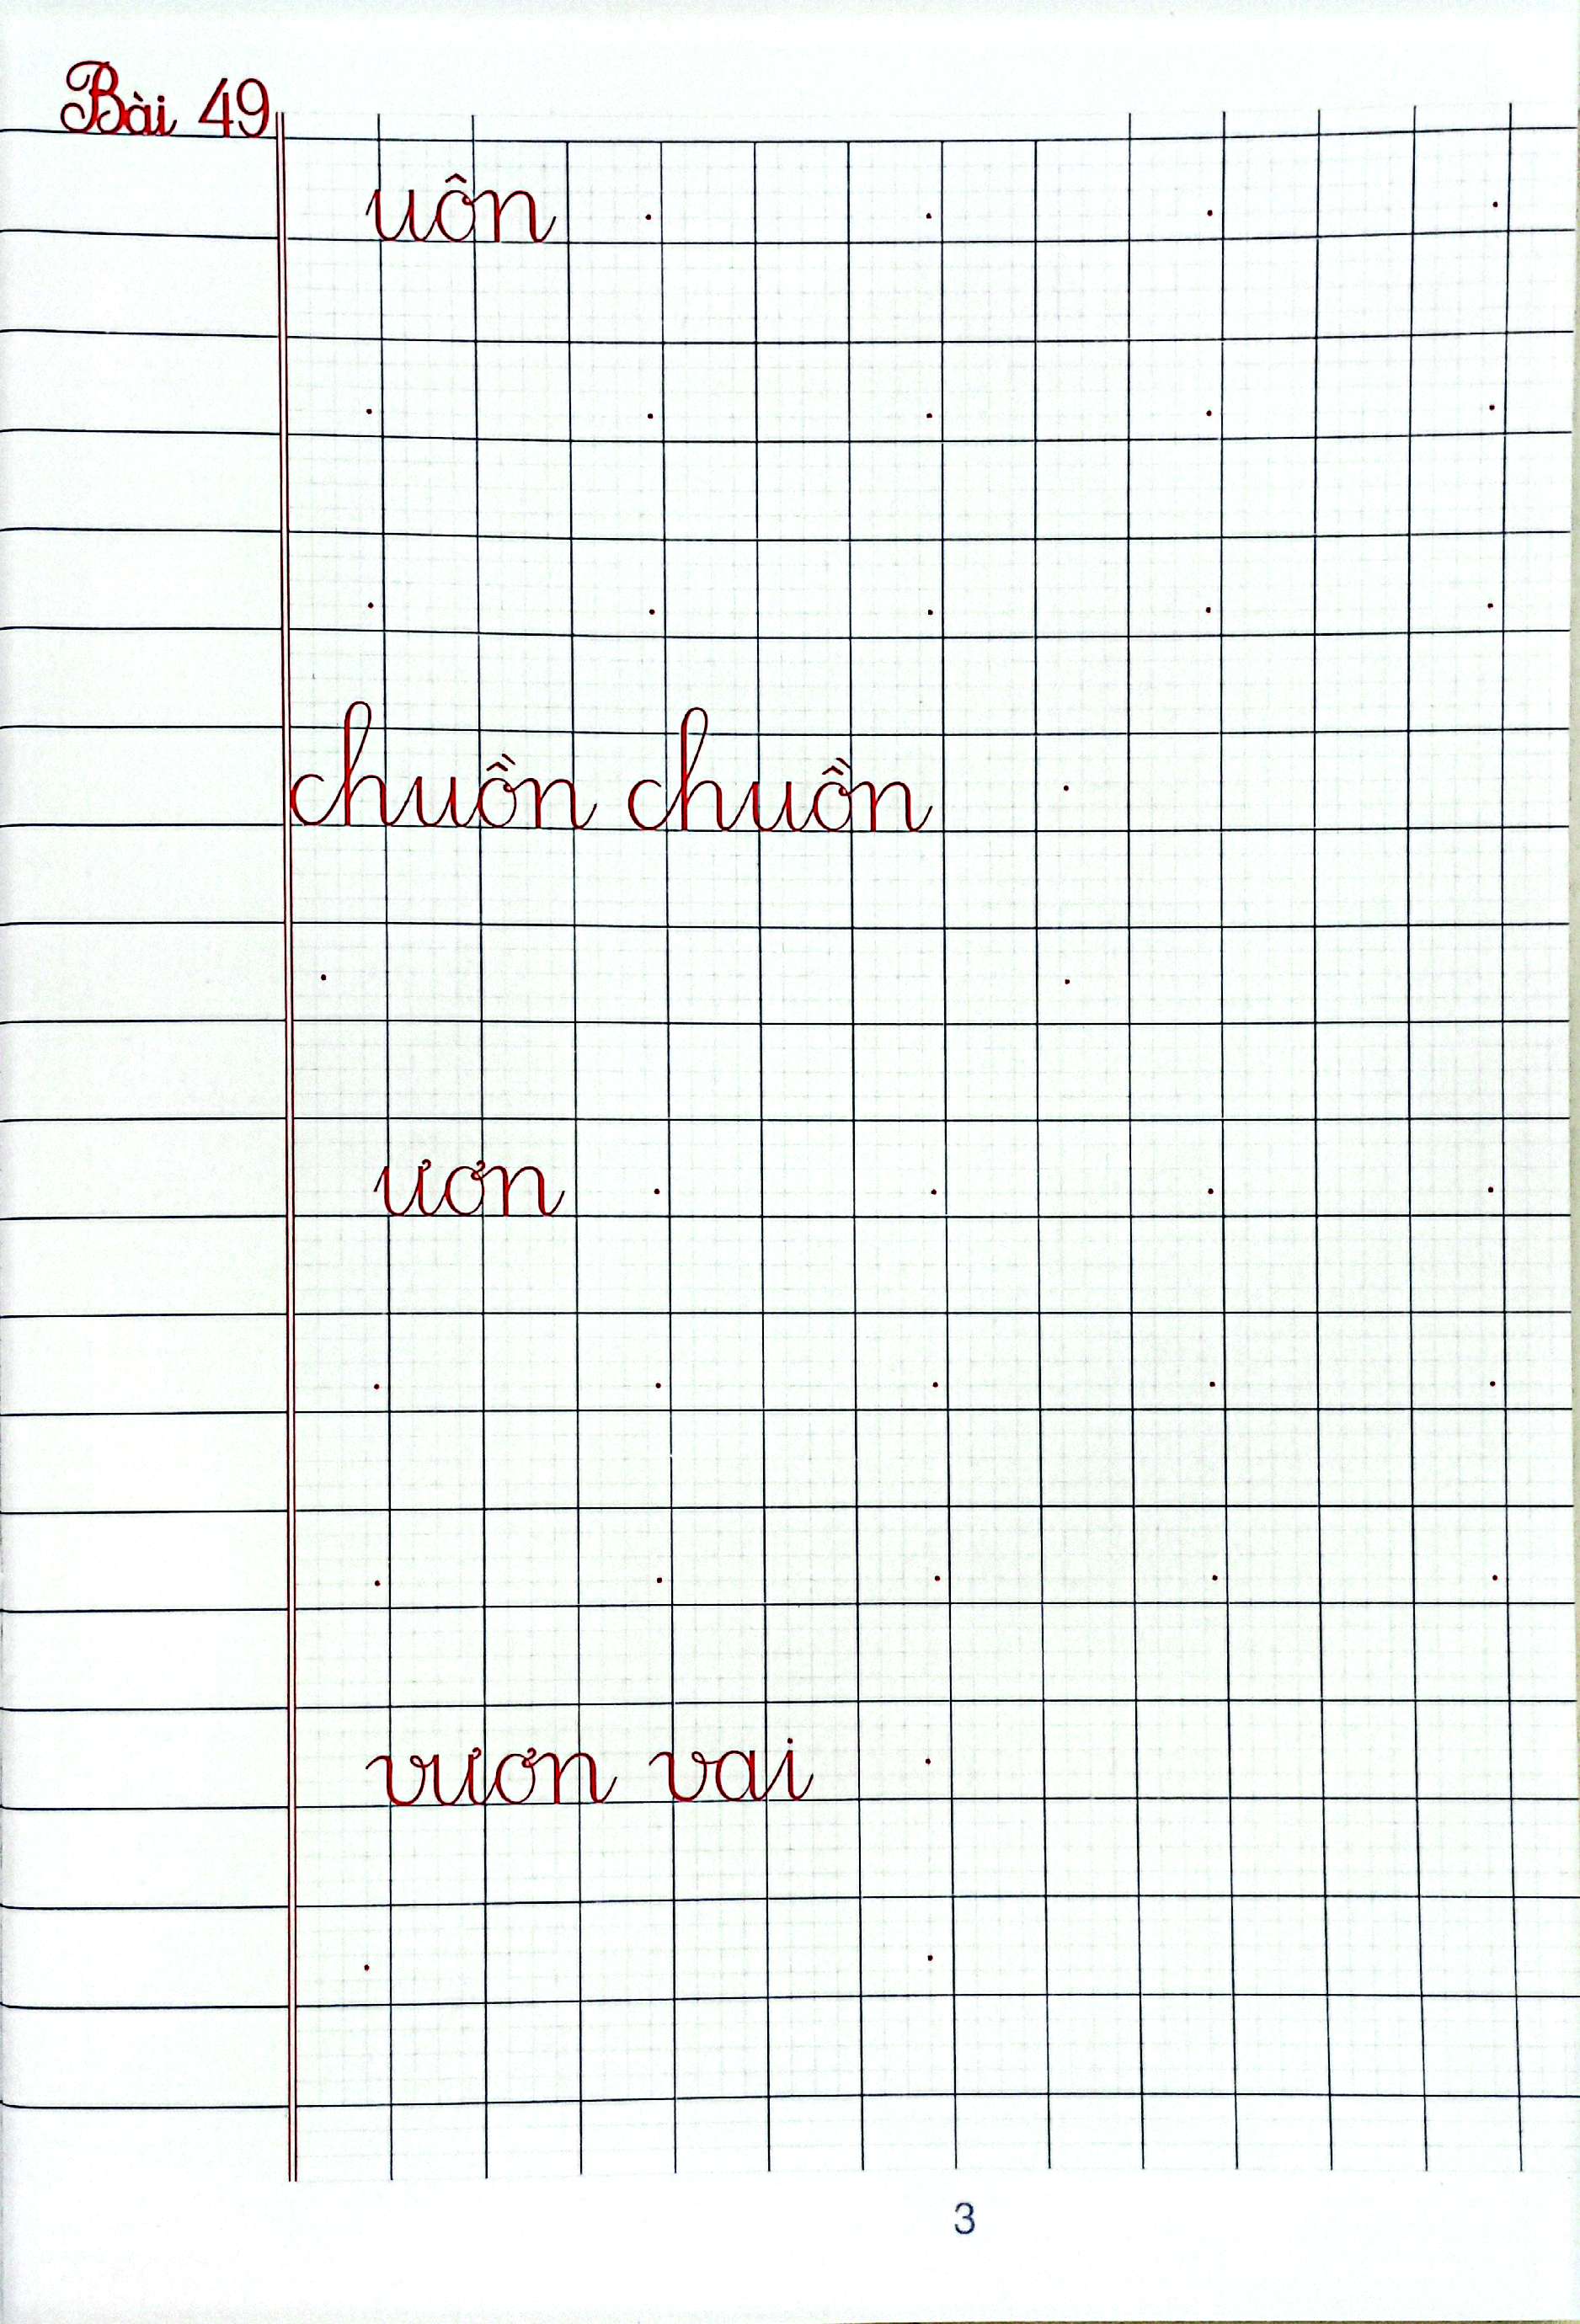 Bài 49
uôn
chuồn chuồn
ươn
vươn vai
3